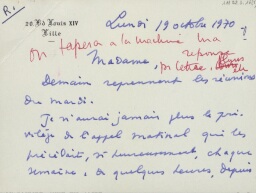 R.
20 Bd Louis XIV
Lille
Lundi 19 octobre 1970
on tapera a la machine ma
reponse
Madame,
par lettre,
Demain reprennent les réunions
du mardi.
Je n'aurai jamais plus le pri-
vilège de l'appel matinal qui les
précédait, si heureusement, chaque
semaine, de quelques heures, depuis